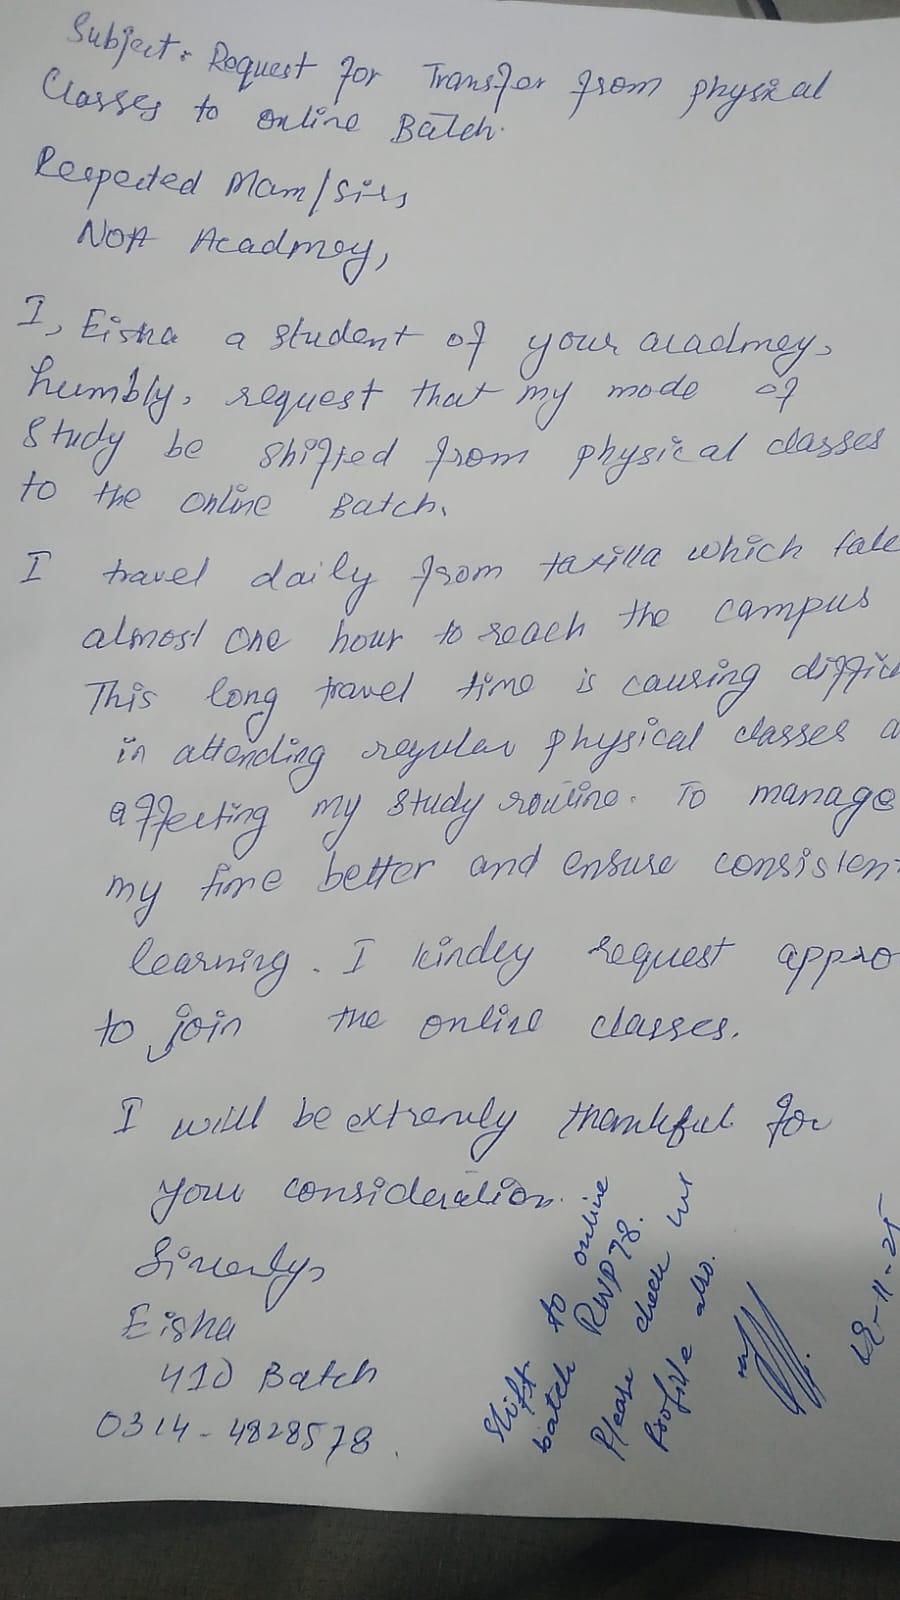 Subject: Request for Transfer from physical
Classes to online Batch.
Respected Mam/Sir,
NOA Acadmey,
I, Eisha a student of your acadmey,
humbly, request that my mode of
study be shifted from physical classes
to the online Batch.
I travel daily from taxilla which take
almost one hour to reach the campus
This long travel time is causing diffic
in attending regular physical classes a
affecting my study routine. To manage
my time better and ensure consisten
learning. I kindly request appro
to join the online classes.
I will be extremly thankful for
your consideration.
Sincerly,
Eisha
41D Batch
0314-4828578.
Shift to online
batch RWP78.
Please check her
profile also.
-11-25